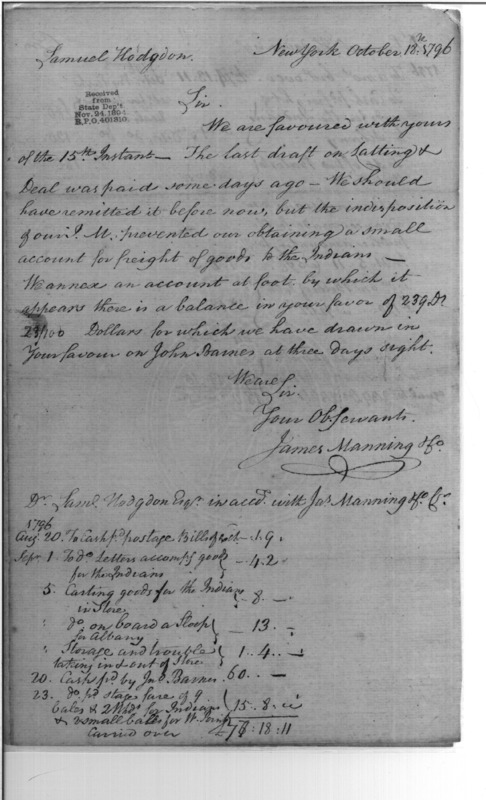 Samuel Hodgdon.
New York October 18th. 1796
Received
from
State Dep't.
Nov. 24, 1894.
Sir
We are favoured with yours
of the 15th Instant — The last draft on Latting &
Deal was paid some days ago — We should
have remitted it before now, but the indisposition
of our J. M. prevented our obtaining a small
account for freight of goods to the Indians —
We annex an account at foot by which it
appears there is a balance in your favor of 239 Ds
23/100 Dollars for which we have drawn in
Your favour on John Barnes at three days sight.
We are Sir
Your Ob Servants
James Manning & Co.
Dr. Saml. Hodgdon Esqr. in acct. with Jas Manning & Co Cr.
1796
Aug 20. To Cash pd postage Bill of
Sepr. 1. To do Letters accompg goods — 4.2
for the Indians
5. Carting goods for the Indians — 8. —
in Store
" do. on board a Sloop — 13. —
for Albany
" Storage and trouble 1. 4. —
taking in & out of Store
20. Cash pd by Jno. Barnes 60. . —
23. do pd stage fare of 9
bales & 2 for Indians 15. 8.
& 2 small bales for W. Point
Carried over £ 78:18:11